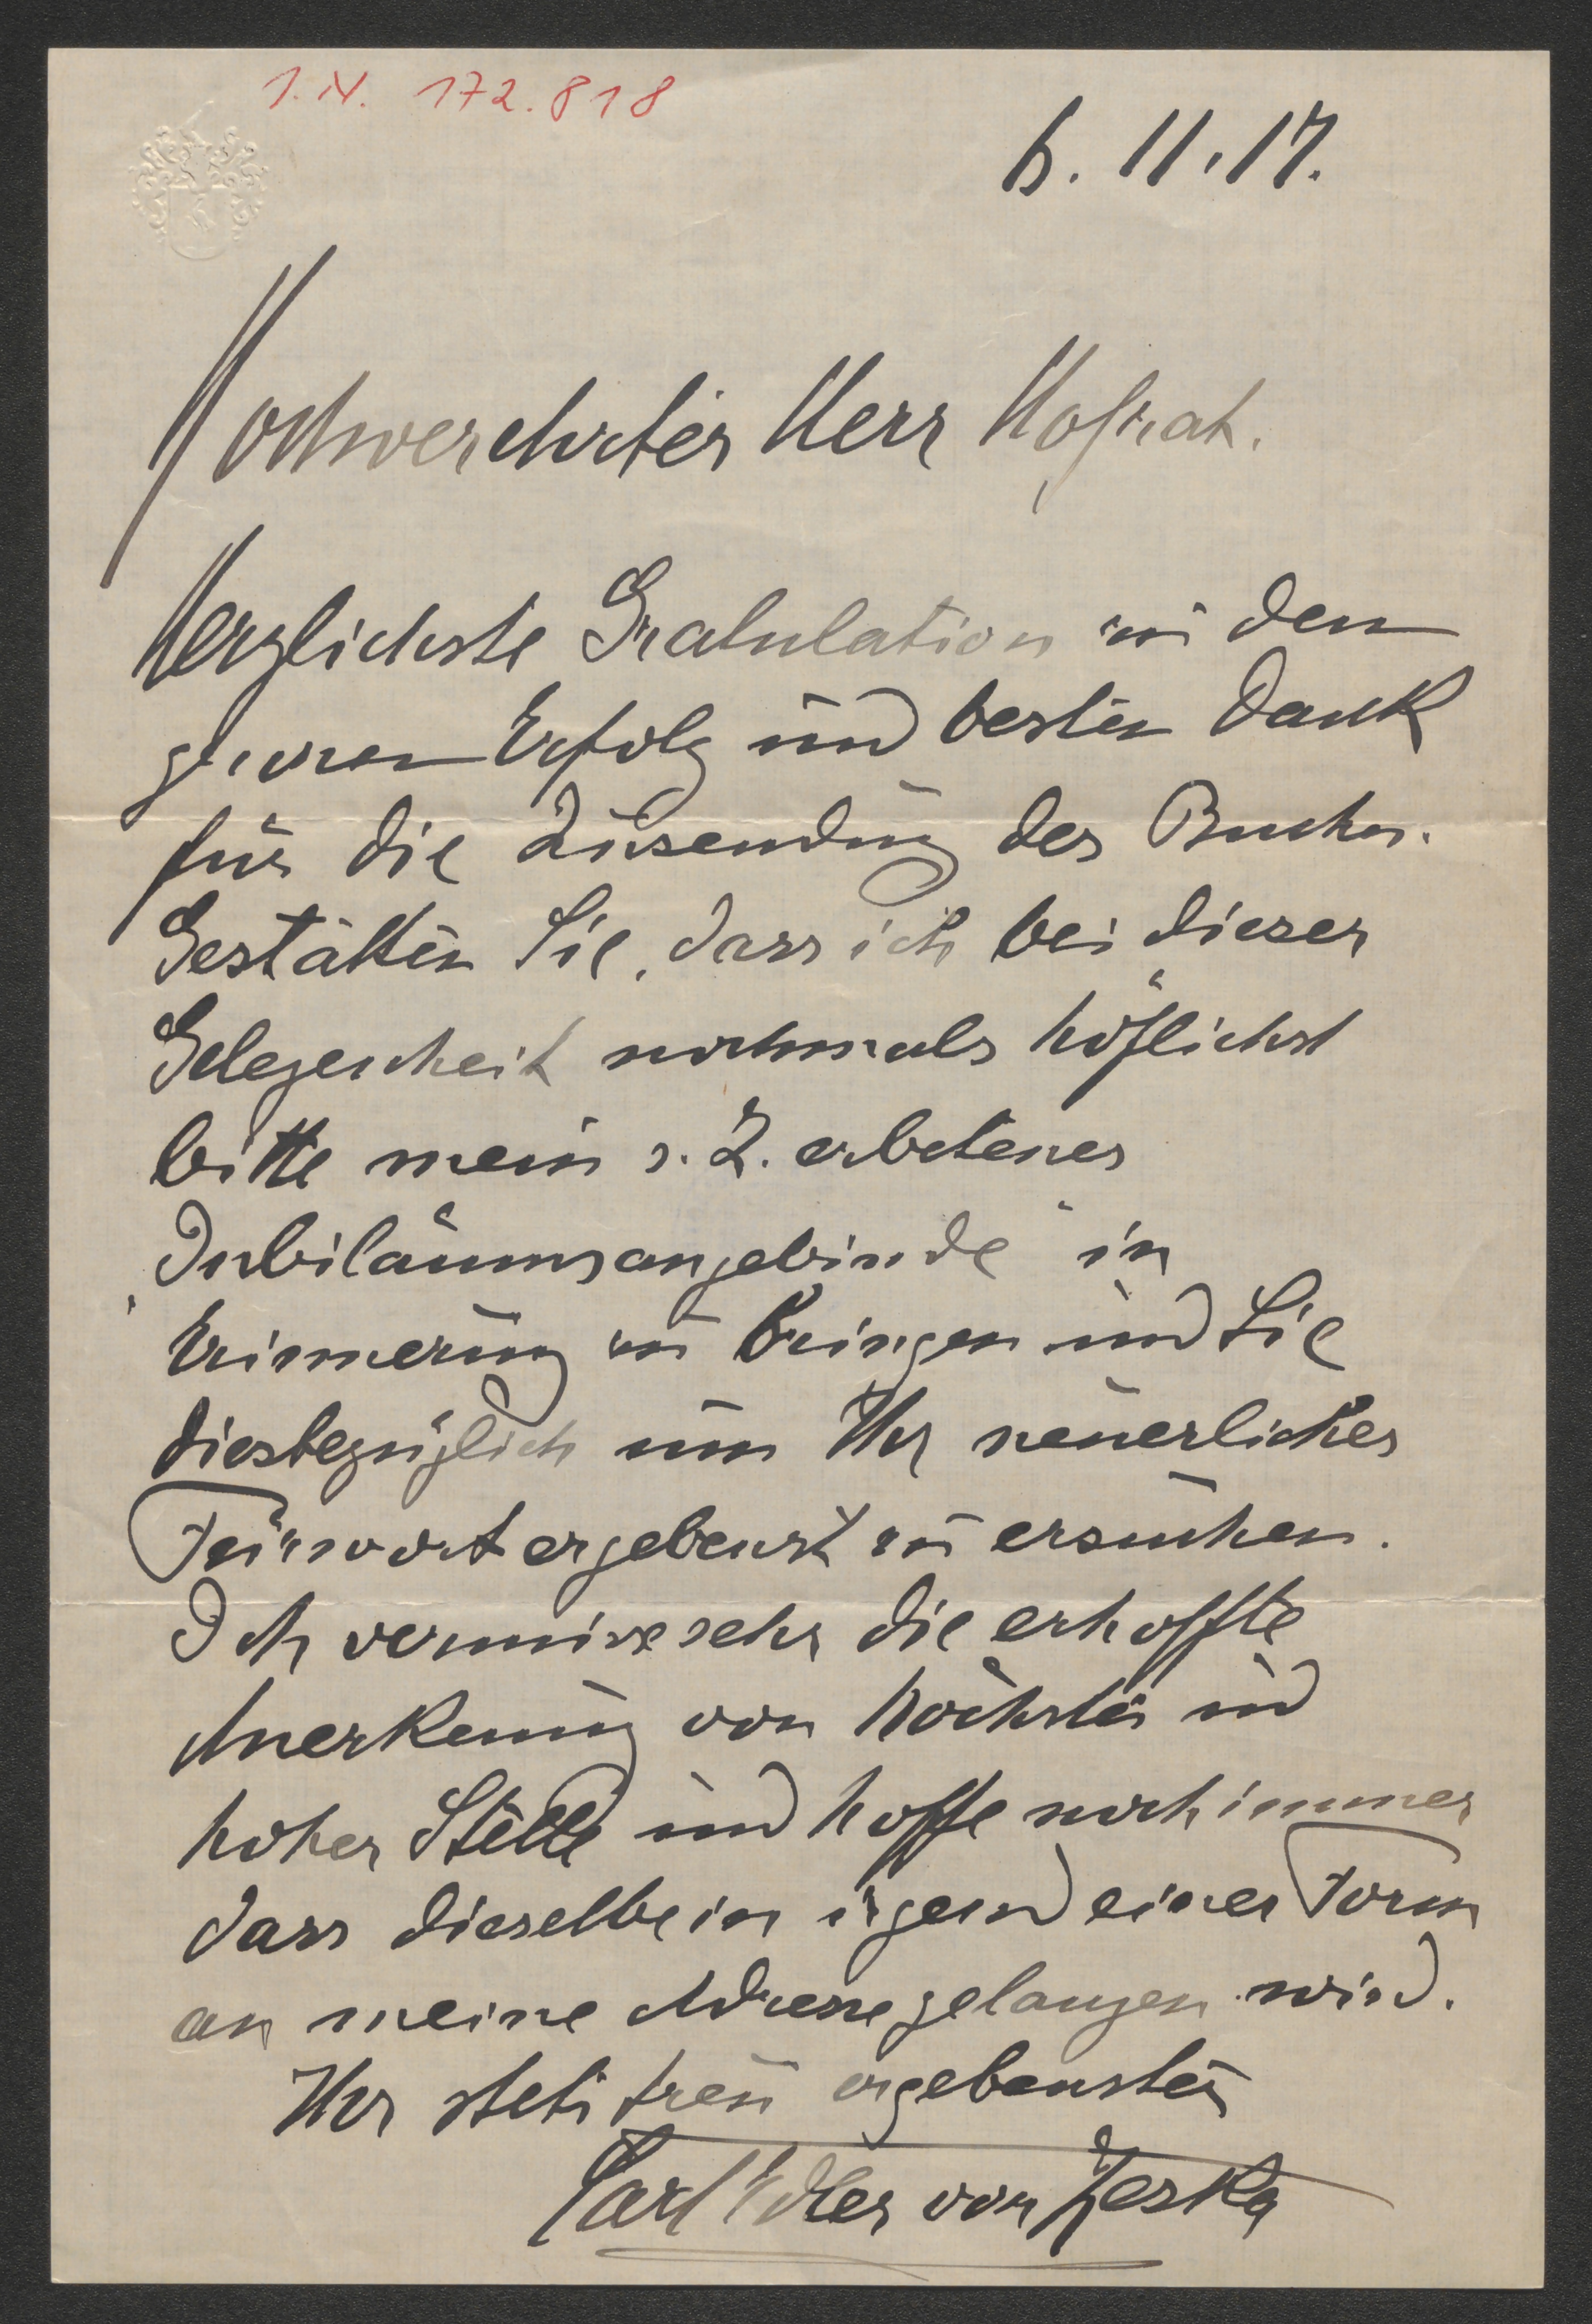 I.N. 172.818
6. 11. 17.
Hochverehrter Herr Hofrat.
Herzlichste Gratulation zu dem
grossen Erfolg und besten Dank
für die Zusendung des Buches.
Gestatten Sie, dass ich bei dieser
Gelegenheit nochmals höflichst
bitte mein s. Z. erbetenes
„Jubiläumsangebinde" in
Erinnerung zu bringen und Sie
diesbezüglich um Ihr neuerliches
Fürwort ergebenst zu ersuchen.
Ich vermisse sehr die erhoffte
Anerkennung von höchster und
hoher Stelle und hoffe noch immer
dass dieselbe in irgend einer Form
an meine Adresse gelangen wird.
Ihr stets treu ergebenster
Carl Edler von Zeska